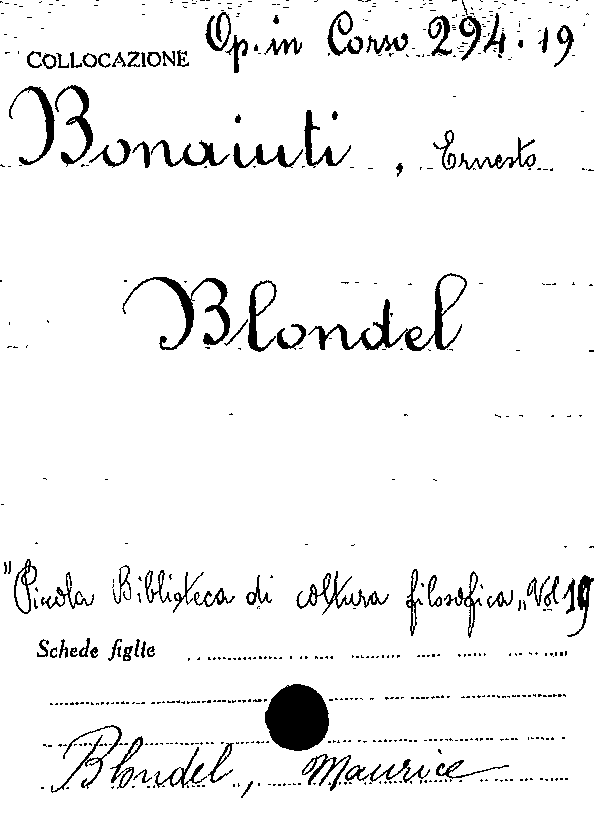 COLLOCAZIONE Op. in Corso 294.19
Bonaiuti, Ernesto
Blondel
"Picola Biblioteca di coltura filosofica„ Vol 19
Schede figlie
Blondel, Maurice